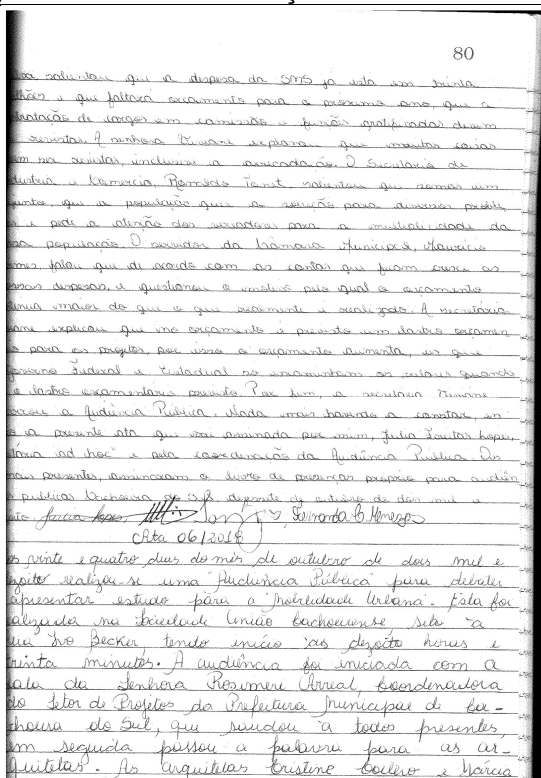 80
salientou que a despesa da SMS já está em trinta
milhões e que faltará orçamento para o próximo ano, que a
contratação de cargos em comissão e funções gratificadas devem
ser revistas. A senhora Viviane explanou que muitas coisas
tem na revistas, inclusive a arrecadação. O Secretário de
Indústria e Comércio, Ronildo salientou que somos um
que a população quer a solução para diversos proble
e pede a atenção dos vereadores para a multiplicidade da
nossa população. O servidor da Câmara Municipal, Maurício
falou que de acordo com as contas que ficam as
nossas despesas, e questionou o motivo pelo qual o orçamento
maior do que o que realmente é realizado. A secretária
Viviane explicou que no orçamento é previsto um lastro orçamen
para os projetos, por isso o orçamento aumenta, eis que
governo Federal e Estadual só encaminham os valores quando
lastro orçamentário previsto. Por fim, a secretária Viviane
encerrou a Audiência Pública. Nada mais havendo a constar,
a presente ata que vai assinada por mim, Julia Freitas Lopes,
secretária "ad hoc" e pela coordenação da Audiência Pública. Os
mais presentes, assinaram o livro de presenças próprio para audiên
públicas. Cachoeira do Sul, dezenete de outubro de dois mil e
Lopes, Fernanda Menezes
Ata 06/2018
Aos vinte e quatro dias do mês de outubro de dois mil e
dezoito realizou-se uma "Audiência Pública" para debater
apresentar estudo para a "Mobilidade Urbana". Esta foi
realizada na Sociedade União Cachoeirense, sito a
rua Ivo Becker, tendo início às dezoito horas e
trinta minutos. A audiência foi iniciada com a
fala da Senhora Rosimeri Arreal, Coordenadora
do Setor de Projetos da Prefeitura Municipal de Ca-
choeira do Sul, que saudou a todos presentes,
em seguida passou a palavra para as ar-
quitetas. As arquitetas Cristine e Márcia